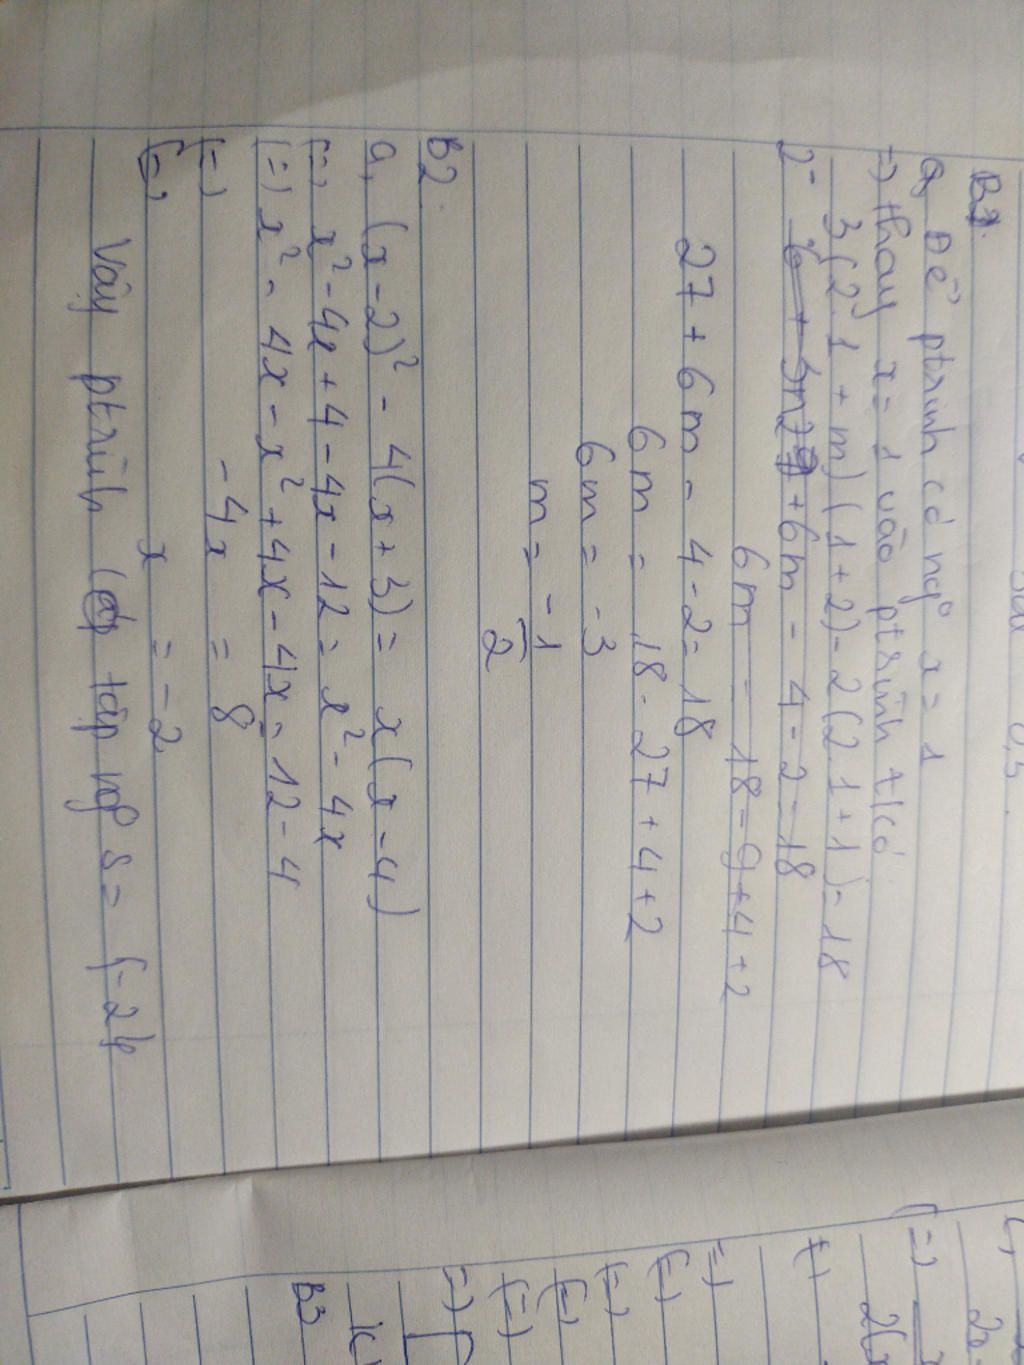 B1.
a, Để ptrình có ngº x = 1
=) thay x = 1 vào ptrình t/có
3(2.1 + m)(1+2)-2(2.1+1)=18
+6m - 4-2=18
6m = 18-9+4+2
27+6m-4-2=18
6m = 18-27+4+2
6m = -3
m = -1/2
B2.
a, (x-2)² - 4(x+3) = x(x-4)
(=) x²-4x+4-4x-12 = x²-4x
(=) x²-4x-x²+4x-4x=12-4
(=) -4x = 8
(=) x = -2
Vậy ptrình tập ngº S = {-2}
B3